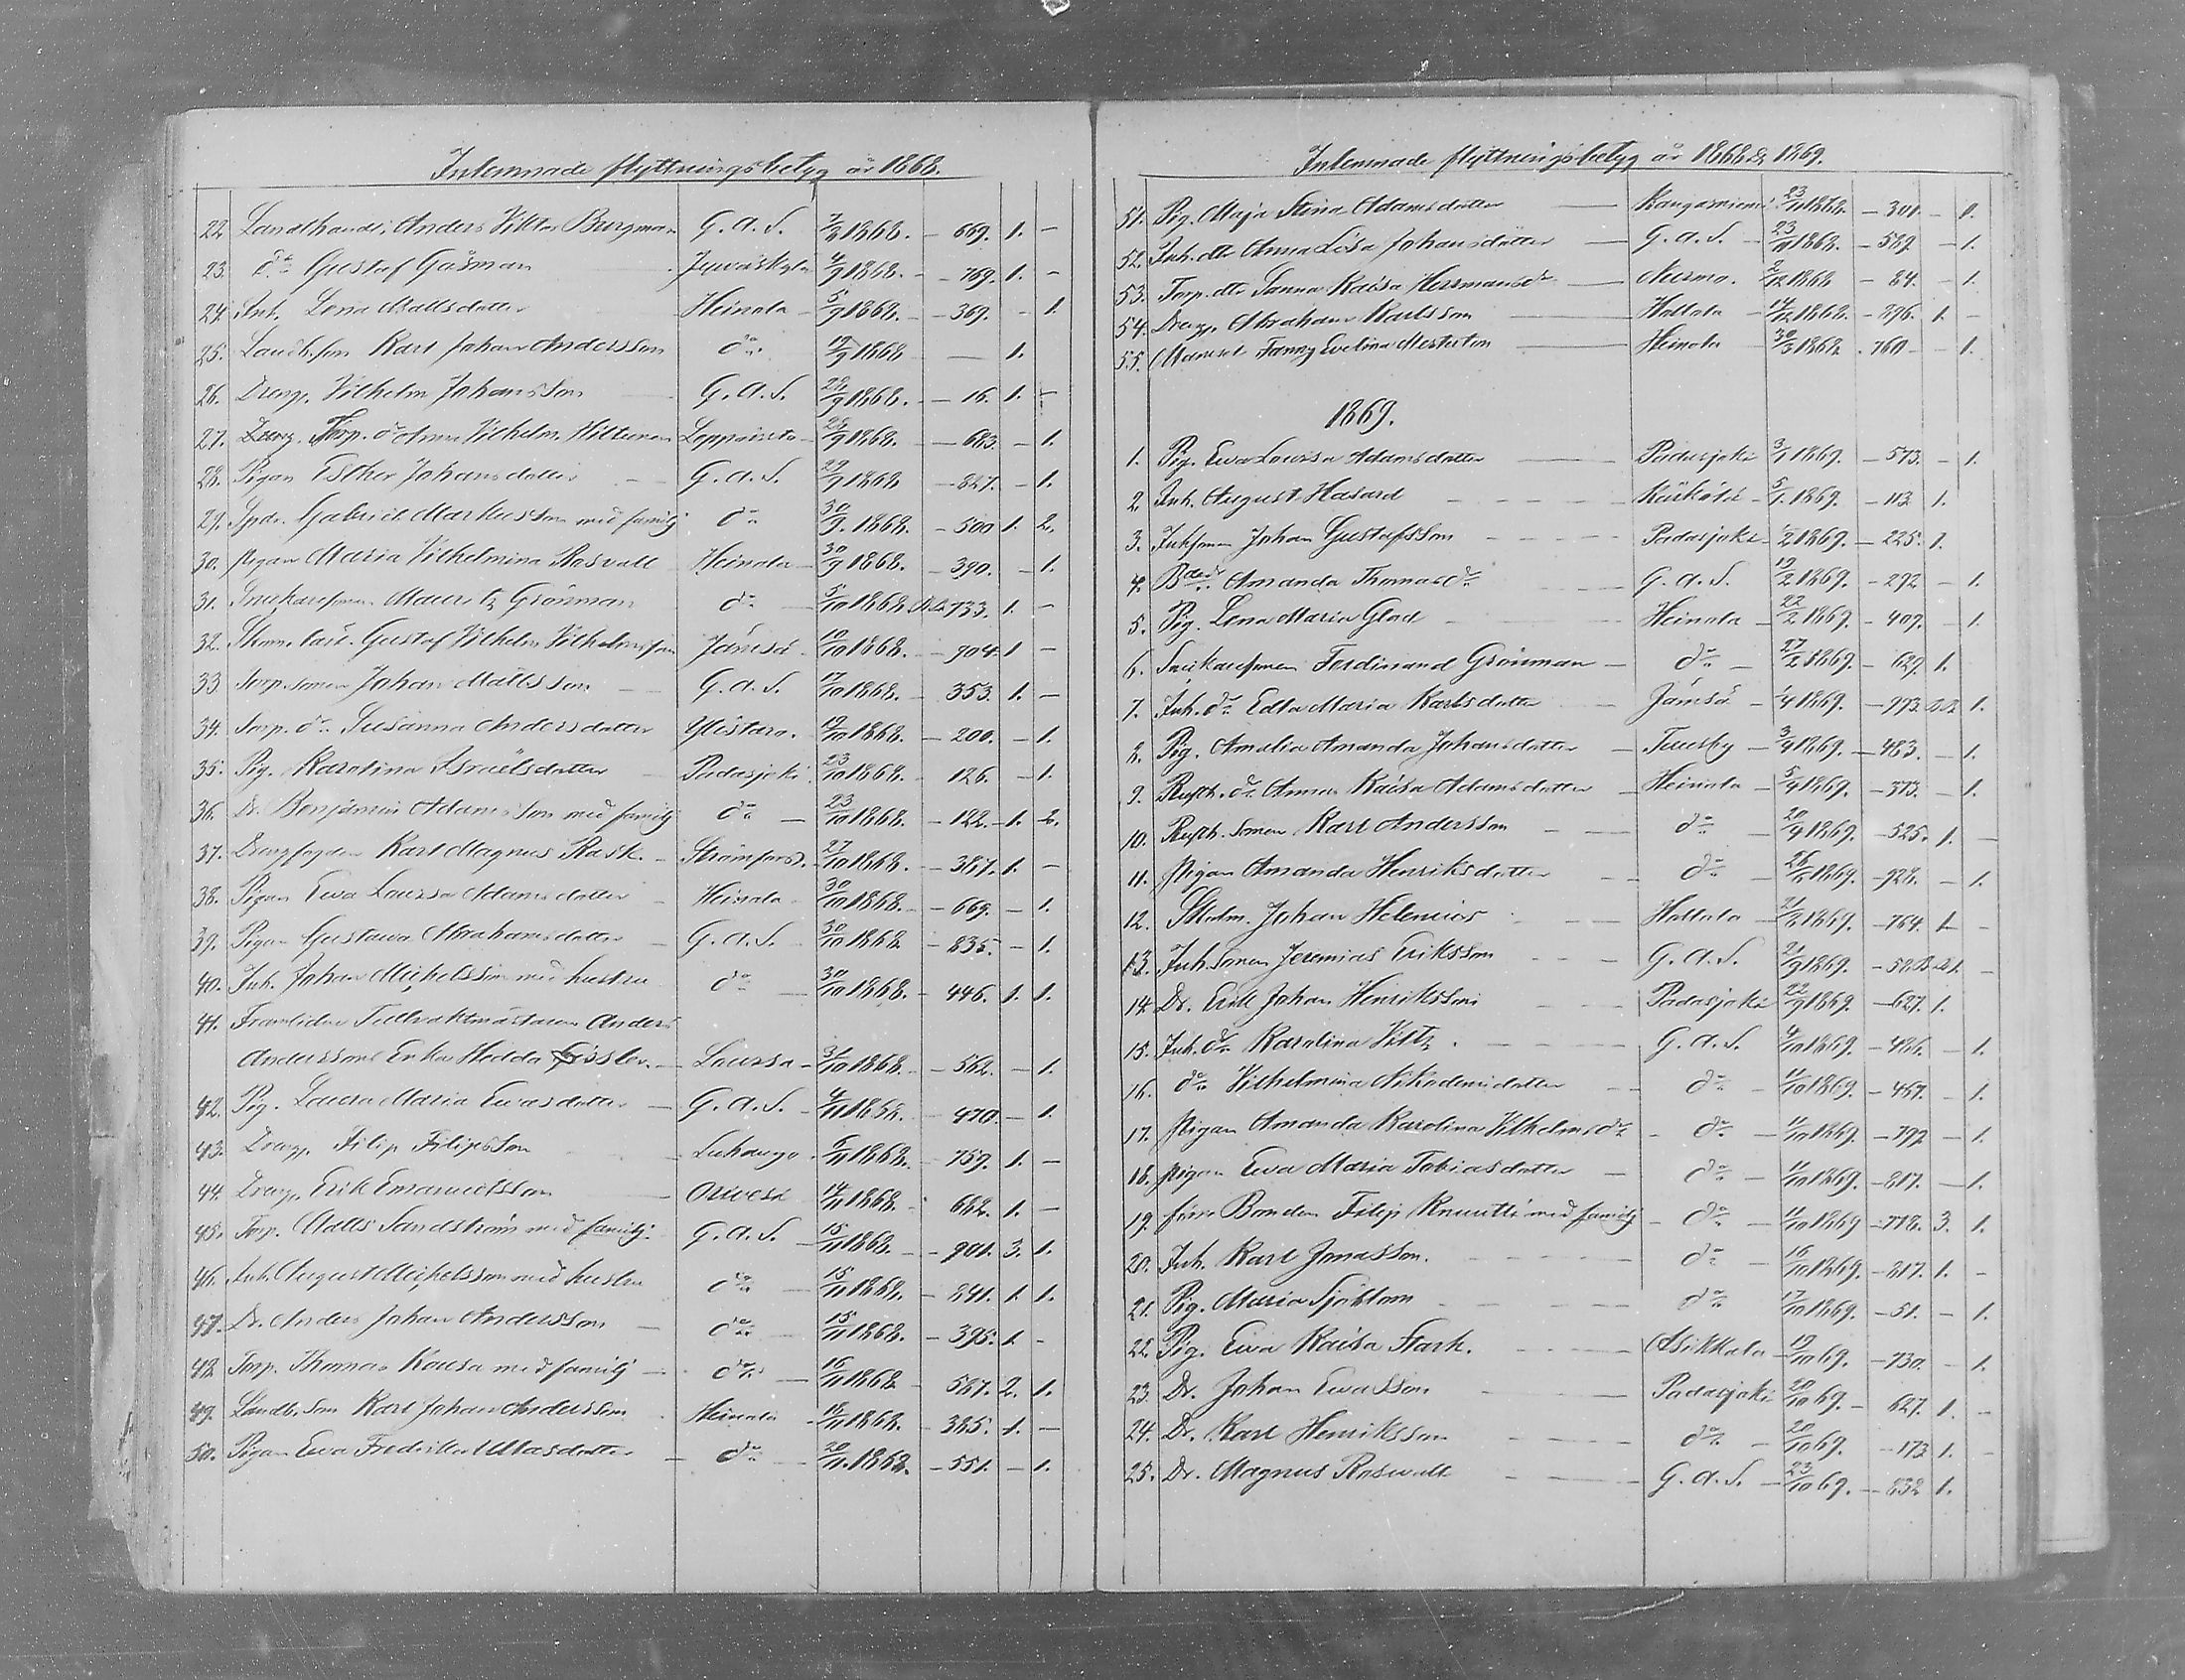 Inlemnade flyttningsbetyg år 1868.
22. Landthandl. Anders Viktor Burgman G. a. S. 2/9 1868. – 669. 1. –
23. do Gustaf Gåsman Jyväskylä 4/9 1868. – 769. 1. –
24. Inh. Lena Mattsdotter Heinola 5/9 1868. – 369. – 1.
25. Landb. son Karl Johan Andersson do 19/9 1868 – 1.
26. Dreng. Vilhelm Johansson G. a. S. 28/9 1868. – 16. 1. –
27. Torp. do Anna Vilhelm. Hiltunen 28/9 1868. – 683. – 1.
28. Pigan Esther Johansdotter G. a. S. 29/9 1868 – 827. – 1.
29. Spdr. Gabriel Markusson med familj do 30/9. 1868. – 500 1. 2.
30. Pigan Maria Vilhelmina Rosvall Heinola – 30/9 1868. – 390. – 1.
31. Mauritz Grönman do 5/10 1868 733. 1. –
32. Gustaf Vilhelm Vilhelmsson Jämsä – 10/10 1868. – 904. 1 –
33 Torp. sonen Johan Mattsson G. a. S. 17/10 1868. – 353. 1. –
34. Torp. do Susanna Andersdotter Ylistaro. 19/10 1868. – 200. – 1.
35. Pig. Karolina Israelsdotter Padasjoki 23/10 1868. – 126. – 1.
36. Dr. Benjamin Adamsson med familj do – 23/10 1868. – 122. – 1. 2.
37. Drengfogden Karl Magnus Rask. – Strömfors. 27/10 1868. – 387. 1. –
38. Pigan Eva Lovisa Adamsdotter Heinola 30/10 1868. – 669. – 1.
39. Pigan Gustava Abrahamsdotter G. a. S. 30/10 1868 – 835. – 1.
40. Inh. Johan Michelsson med hustru do 30/10 1868. – 446. 1. 1.
41. Framlidne Anders
Anderssons Enka Hedda – Lovisa – 31/10 1868. – 562. – 1.
42. Pig. Laura Maria Evasdotter – G. a. S. – 4/11 1868. – 470. – 1.
43. Dreng. Filip Filipsson Luhanga. 5/11 1868. – 759. 1. –
44. Dreng. Erik Emanuelsson Orivesi 14/11 1868. 682. 1. –
45. Torp. Matts Sandström med familj. G. a. S. 15/11 1868. – 901. 3. 1.
46. Inh. August Michelsson med hustru do 15/11 1868. – 841. 1. 1.
47. Dr. Anders Johan Andersson – do 15/11 1868. – 395. 1. –
48. Torp. Thomas Kausa med familj – do 16/11 1868 567. 2. 1.
49. Landb. son Karl Johan Andersson Heinola 18/11 1868. – 385. 1. –
50. Pigan Eva Fredrika – do – 20/11. 1868. – 551. – 1.
Inlemnade flyttningsbetyg år 1868 & 1869.
51. Pig. Maja Stina Adamsdotter – Kangasniemi 23/11 1868. – 301. – 1.
52. Inh. dtr Anna Lisa Johansdotter – G. a. S. – 23/11 1868. – 589 – 1.
53. Torp. dtr Sanna Kaisa Hermansdr – Nurmo. 2/12 1868 – 84. – 1.
54. Dreng. Abraham Karlsson – Hollola – 14/12 1868. – 896. 1. –
55. Mamsell Fanny Evelina Mesterton – Heinola 30/3 1868. 760 – 1.
1869.
1. Pig. Eva Lovisa Adamsdotter – Padasjoki 3/1 1869. – 573. – 1.
2. Inh. August Hasard – – Kärkölä – 5/1. 1869. – 113 1.
3. Inhsonen Johan Gustafsson – Padasjoki 1/2 1869. – 225. 1.
4. Amanda Thomasdr G. a. S. 19/2 1869. – 292 – 1.
5. Pig. Lena Maria Glad – Heinola – 22/2 1869. – 409. – 1.
6. Ferdinand Grönman – do – 27/2 1869. – 629. 1.
7. Inh. dr Edla Maria Karlsdotter – Jämsä – 1/4 1869. – 993. 1.
8. Pig. Amalia Amanda Johansdotter – Tuusby – 3/4 1869. – 483. – 1.
9. Rusth. dr Anna Kaisa Adamsdotter – Heinola – 5/4 1869. – 373. – 1.
10. Rusth. sonen Karl Andersson – do – 20/4 1869. – 525. 1. –
11. Pigan Amanda Henriksdotter – do – 1869. – 928. – 1.
12. Johan Helenius – Hollola – 1869. – 764. 1 –
13. Inh. sonen Jeremias Eriksson – G. a. S. 21/9 1869. – 1. –
14. Dr. Erik Johan Henriksson – Padasjoki 22/9 1869. – 627. 1.
15. Inh. dr Karolina – G. a. S. 4/10 1869. – 486. – 1.
16. do Vilhelmina Nikodemidotter – do 11/10 1869. – 467. – 1.
17. Pigan Amanda Karolina Vilhelmsdr – do – 11/10 1869. – 792 – 1.
18. Pigan Eva Maria Tobiasdotter – do – 11/10 1869. – 817. – 1.
19. förre Bonden Filip Knuutti med familj – do – 11/10 1869 – 778. 3. 1.
20. Inh. Karl Jonasson. – do – 16/10 1869. – 817. 1. –
21. Pig. Maria Sjöblom – do – 17/10 1869. – 51. – 1.
22. Pig. Eva Kaisa Stark. – Asikkala – 19/10 69. – 730. – 1.
23. Dr. Johan Evasson – Padasjoki 20/10 69. – 627. 1. –
24. Dr. Karl Henriksson – do – 20/10 69. – 173 1. –
25. Dr. Magnus Roswall – G. a. S. – 23/10 69. – 832 1.